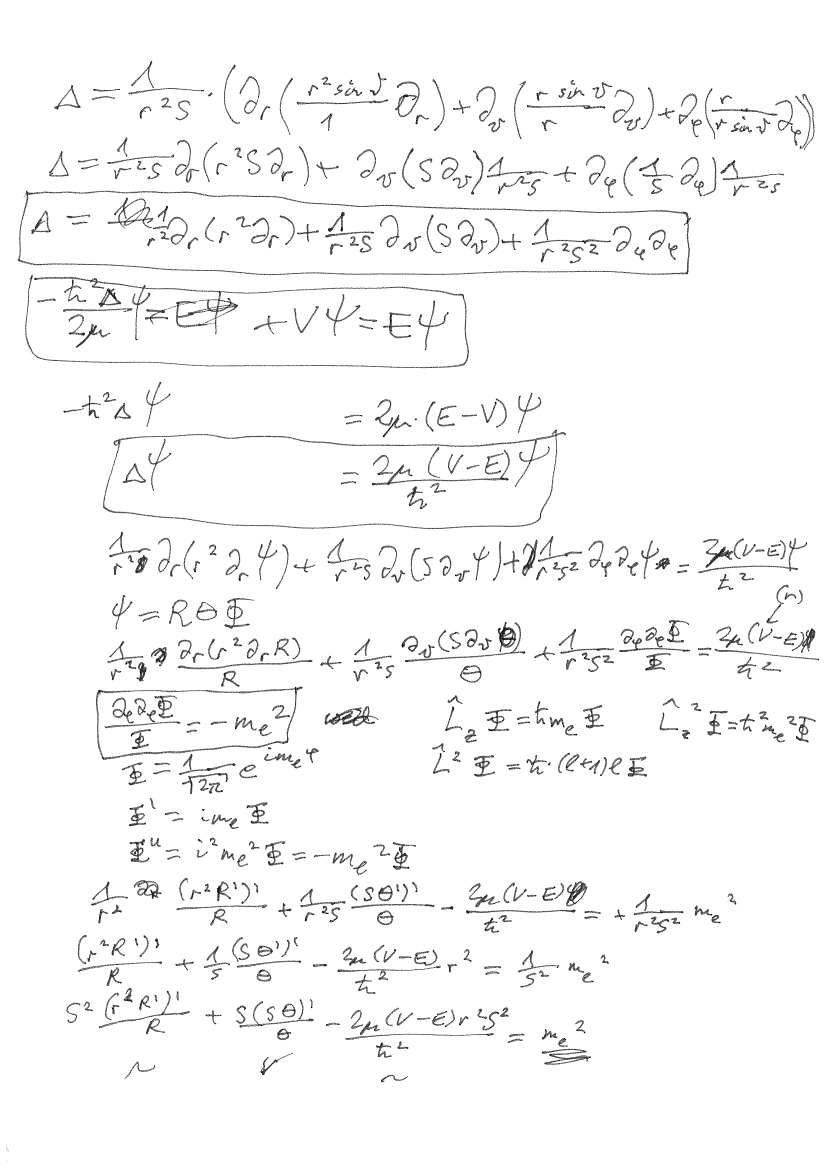 Δ = 1/(r²S) · (∂r( (r² sin ϑ)/1 ∂r) + ∂ϑ( (r sin ϑ)/r ∂ϑ) + ∂φ( r/(r sin ϑ) ∂φ))
Δ = 1/(r²S) ∂r(r²S∂r) + ∂ϑ(S∂ϑ) 1/(r²S) + ∂φ(1/S ∂φ) 1/(r²S)
Δ = 1/r² ∂r(r²∂r) + 1/(r²S) ∂ϑ(S∂ϑ) + 1/(r²S²) ∂φ∂φ
-ħ²Δ/(2μ) Ψ = EΨ + VΨ = EΨ
-ħ²ΔΨ = 2μ·(E-V)Ψ
ΔΨ = 2μ(V-E)/ħ² Ψ
1/r² ∂r(r²∂rΨ) + 1/(r²S) ∂ϑ(S∂ϑΨ) + 1/(r²S²) ∂φ∂φΨ = 2μ(V-E)Ψ/ħ²
Ψ = RΘΦ
(r)
1/r² ∂r(r²∂rR)/R + 1/(r²S) ∂ϑ(S∂ϑΘ)/Θ + 1/(r²S²) ∂φ∂φΦ/Φ = 2μ(V-E)/ħ²
∂φ∂φΦ/Φ = -mₑ² L̂z Φ = ħmₑ Φ L̂z² Φ = ħ²mₑ²Φ
Φ = 1/√(2π) e^(imₑφ) L̂² Φ = ħ·(ℓ+1)ℓ Φ
Φ' = imₑ Φ
Φ'' = i²mₑ²Φ = -mₑ²Φ
1/r² (r²R')'/R + 1/(r²S) (SΘ')'/Θ - 2μ(V-E)/ħ² = + 1/(r²S²) mₑ²
(r²R')'/R + 1/S (SΘ')'/Θ - 2μ(V-E)/ħ² r² = 1/S² mₑ²
S² (r²R')'/R + S(SΘ)'/Θ - 2μ(V-E)r²S²/ħ² = mₑ²
~ ✓ ~